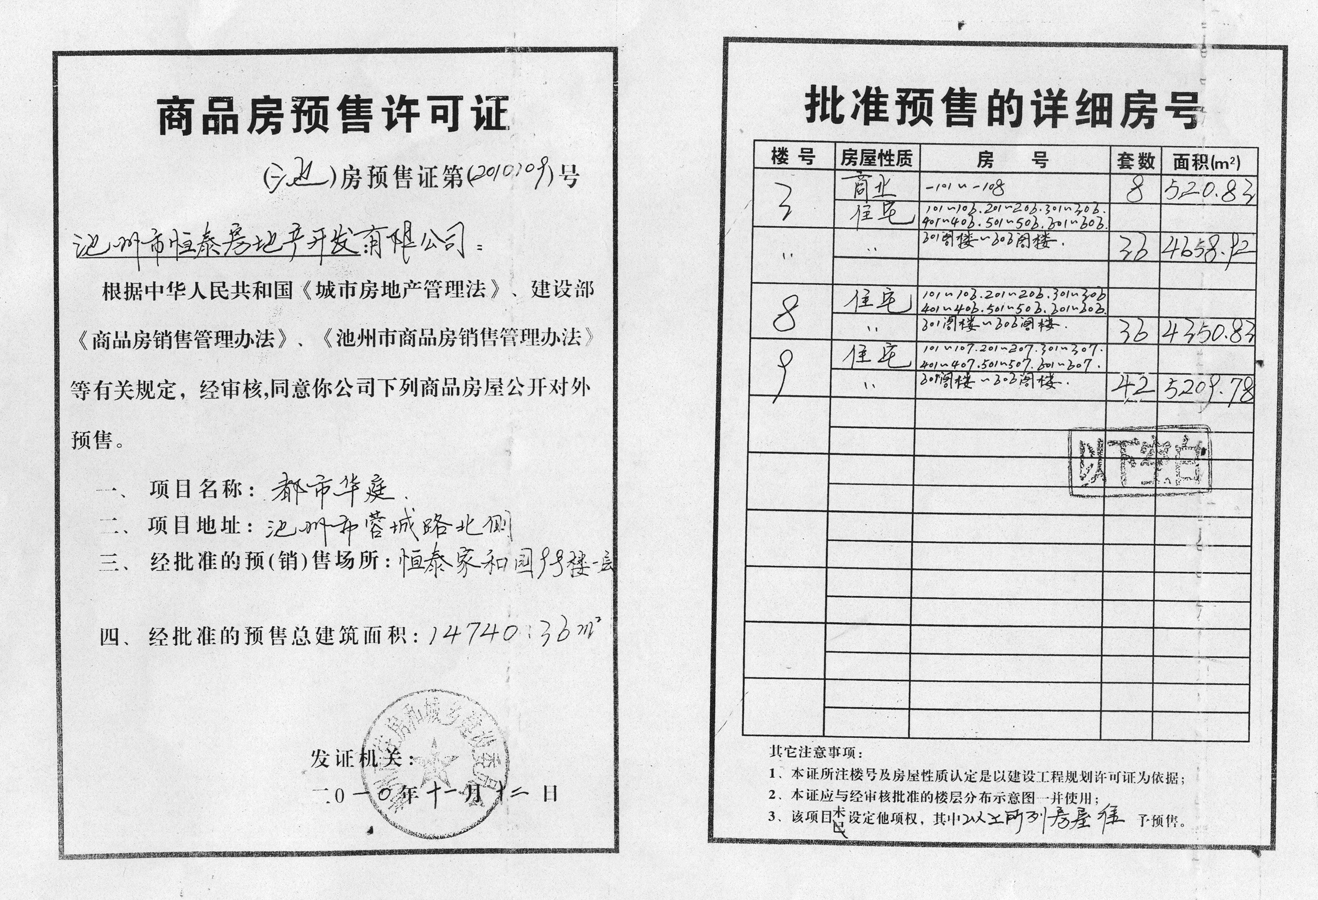 商品房预售许可证
房预售证第(2010109)号
池州市恒泰房地产开发有限公司：
根据中华人民共和国《城市房地产管理法》、建设部
《商品房销售管理办法》、《池州市商品房销售管理办法》
等有关规定，经审核,同意你公司下列商品房屋公开对外
预售。
一、项目名称：都市华庭.
二、项目地址：池州市蓉城路北侧
三、经批准的预(销)售场所：恒泰家和园9号楼一层
四、经批准的预售总建筑面积：14740.36m²
发证机关：
二0一0年十一月十二日
批准预售的详细房号
楼号 房屋性质 房号 套数 面积(m²)
3 商业 -101~-108 8 520.83
住宅 101~106.201~206.301~306.
401~406.501~506.301~303.
〃 301阁楼~303阁楼. 36 4658.92
8 住宅 101~106.201~206.301~306
401~406.501~506.301~303.
〃 301阁楼~303阁楼. 36 4350.83
9 住宅 101~107.201~207.301~307.
401~407.501~507.301~307.
〃 阁楼~ 阁楼. 42 5209.78
以下空白
其它注意事项：
1、本证所注楼号及房屋性质认定是以建设工程规划许可证为依据；
2、本证应与经审核批准的楼层分布示意图一并使用；
3、该项目未设定他项权，其中以上所列房屋准予预售。